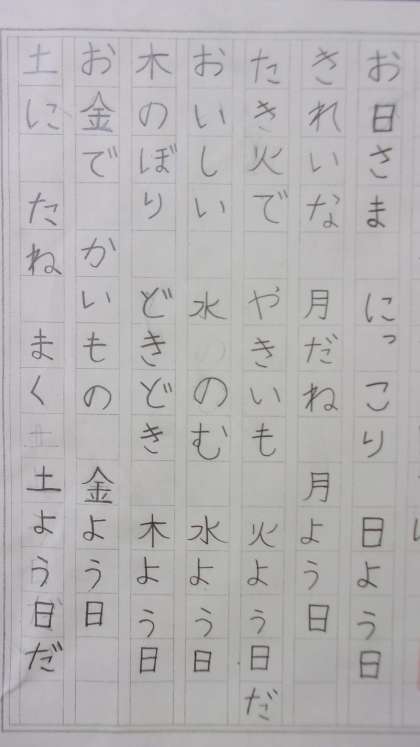 お日さま　にっこり　日よう日
きれいな　月だね　月よう日
たき火で　やきいも　火よう日だ
おいしい　水のむ　水よう日
木のぼり　どきどき　木よう日
お金で　かいもの　金よう日
土に　たね　まく　土よう日だ